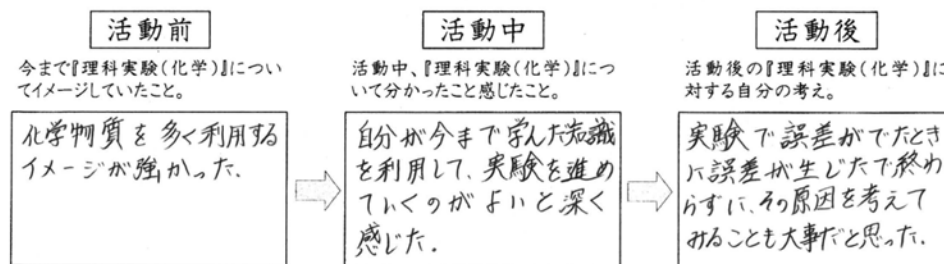 活動前
今まで『理科実験(化学)』につい
てイメージしていたこと。
化学物質を多く利用する
イメージが強かった.
活動中
活動中、『理科実験(化学)』につ
いて分かったこと感じたこと。
自分が今まで学んだ知識
を利用して、実験を進め
ていくのがよいと深く
感じた.
活動後
活動後の『理科実験(化学)』に
対する自分の考え。
実験で誤差がでたとき
に誤差が生じたで終わ
らずに、その原因を考えて
みることも大事だと思った.